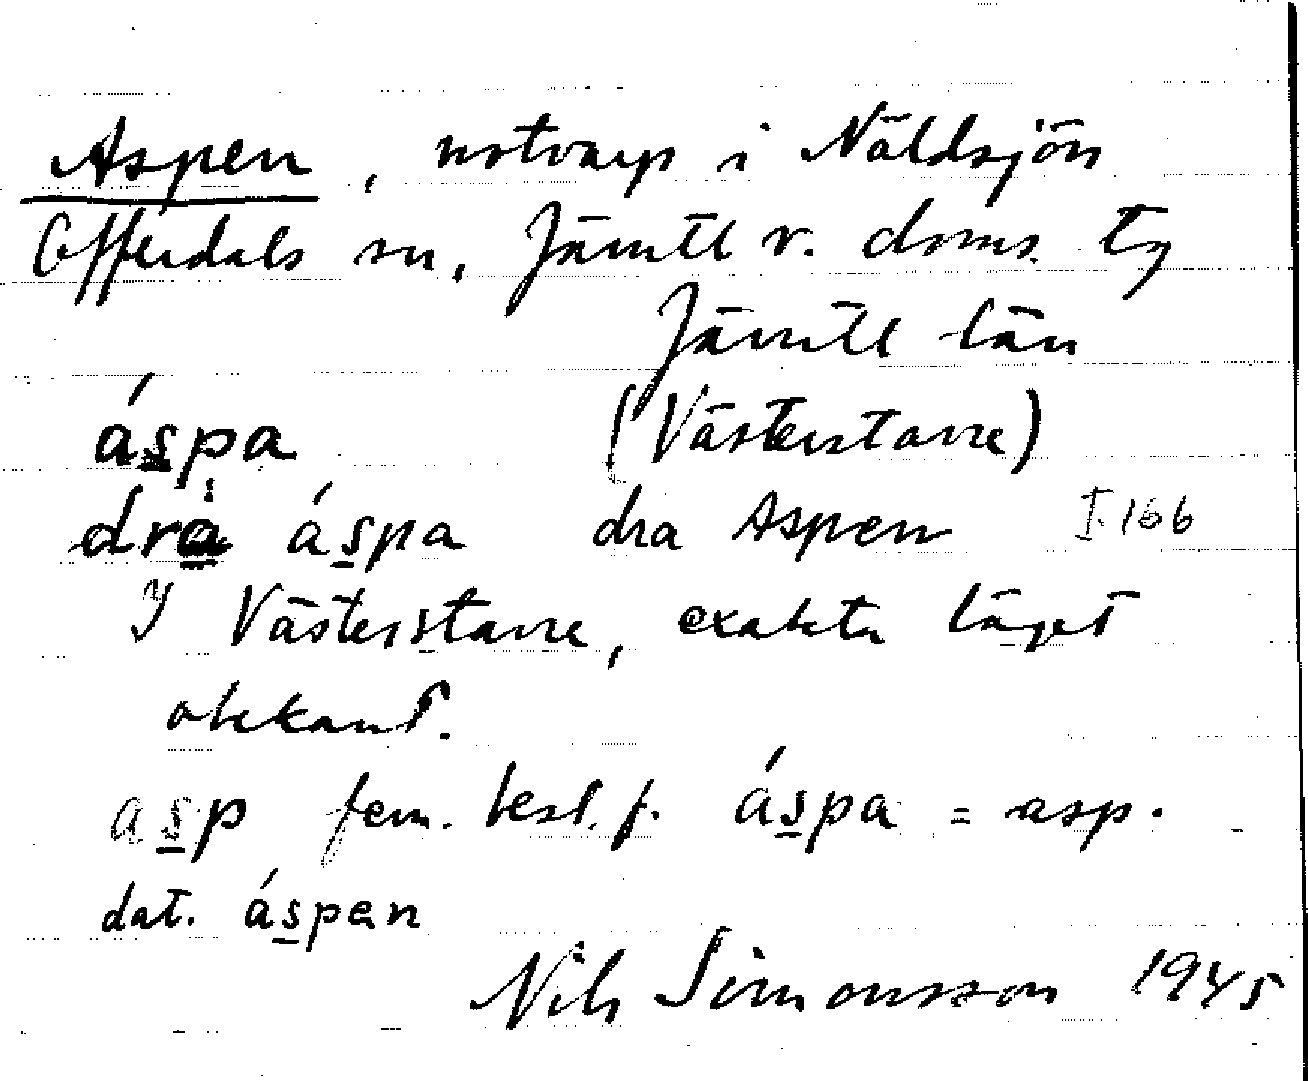 Aspen, notvarp i Näldsjön
Offerdals sn, Jämtl v. doms. tg
Jämtl län
áspa (Västerstavre)
dra áspa dra Aspen I.166
I Västerstavre, exakta läget
obekant.
asp fem. best. f. áspa = asp.
dat. áspen
Nils Simonsson 1945